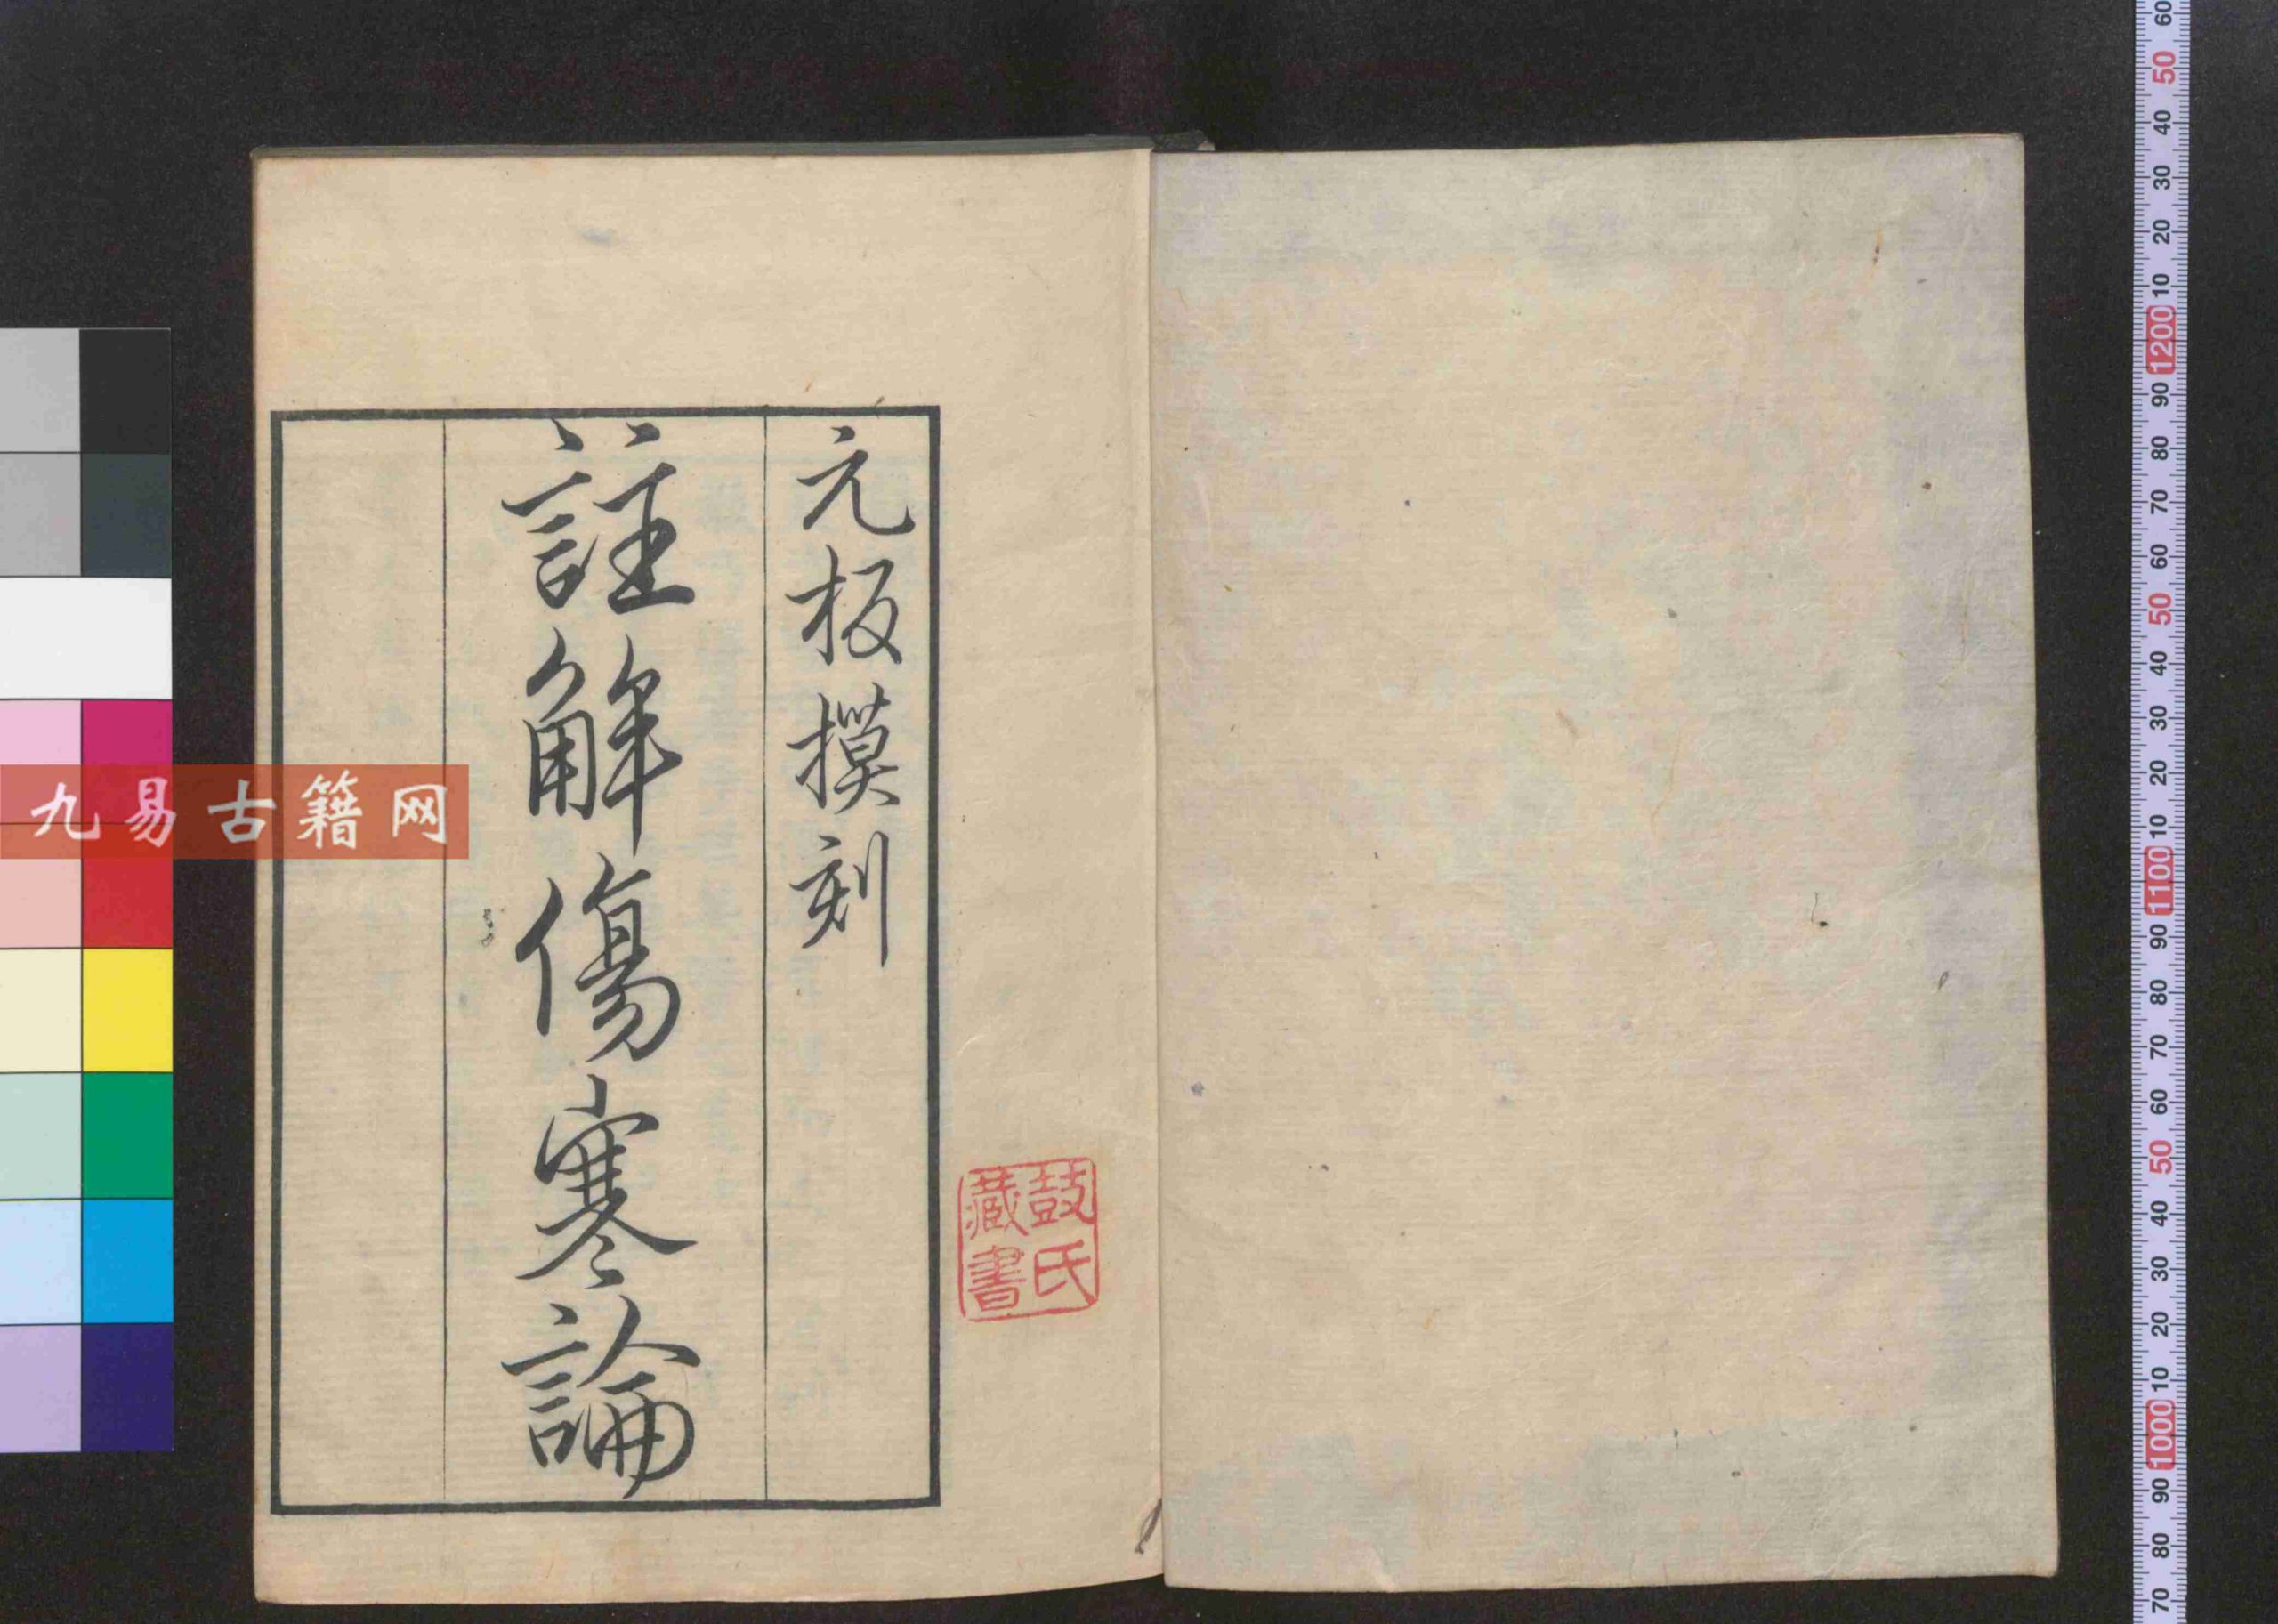 元板摸刻
註解傷寒論
鼓氏
藏書
九易古籍网
60
50
40
30
20
10
1200
90
80
70
60
50
40
30
20
10
1100
90
80
70
60
50
40
30
20
10
1000
90
80
70